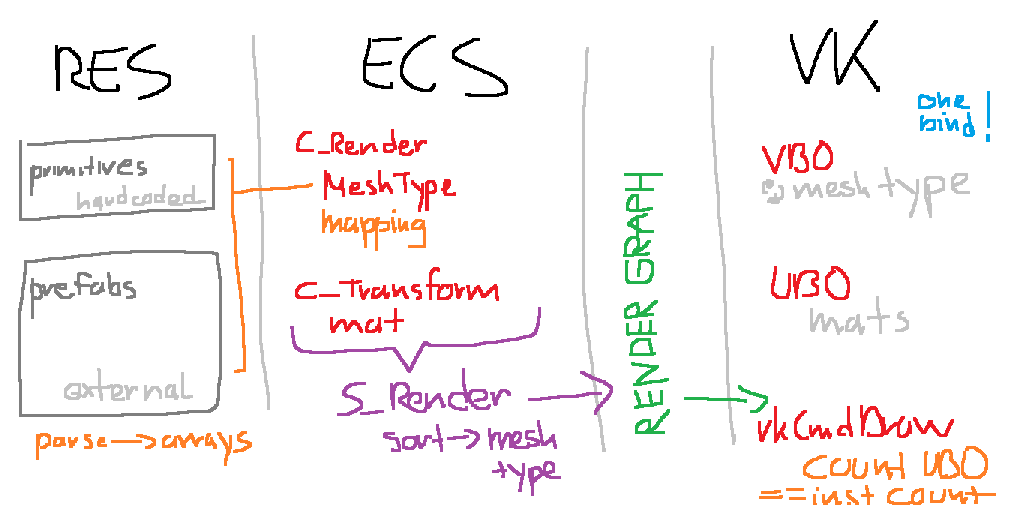 RES
ECS
VK
one
bind!
primitives
hardcoded
prefabs
external
parse → arrays
C_Render
MeshType
mapping
C_Transform
mat
S_Render
sort → mesh
type
RENDER GRAPH
VBO
mesh type
UBO
mats
vkCmdDraw
count UBO
== inst count